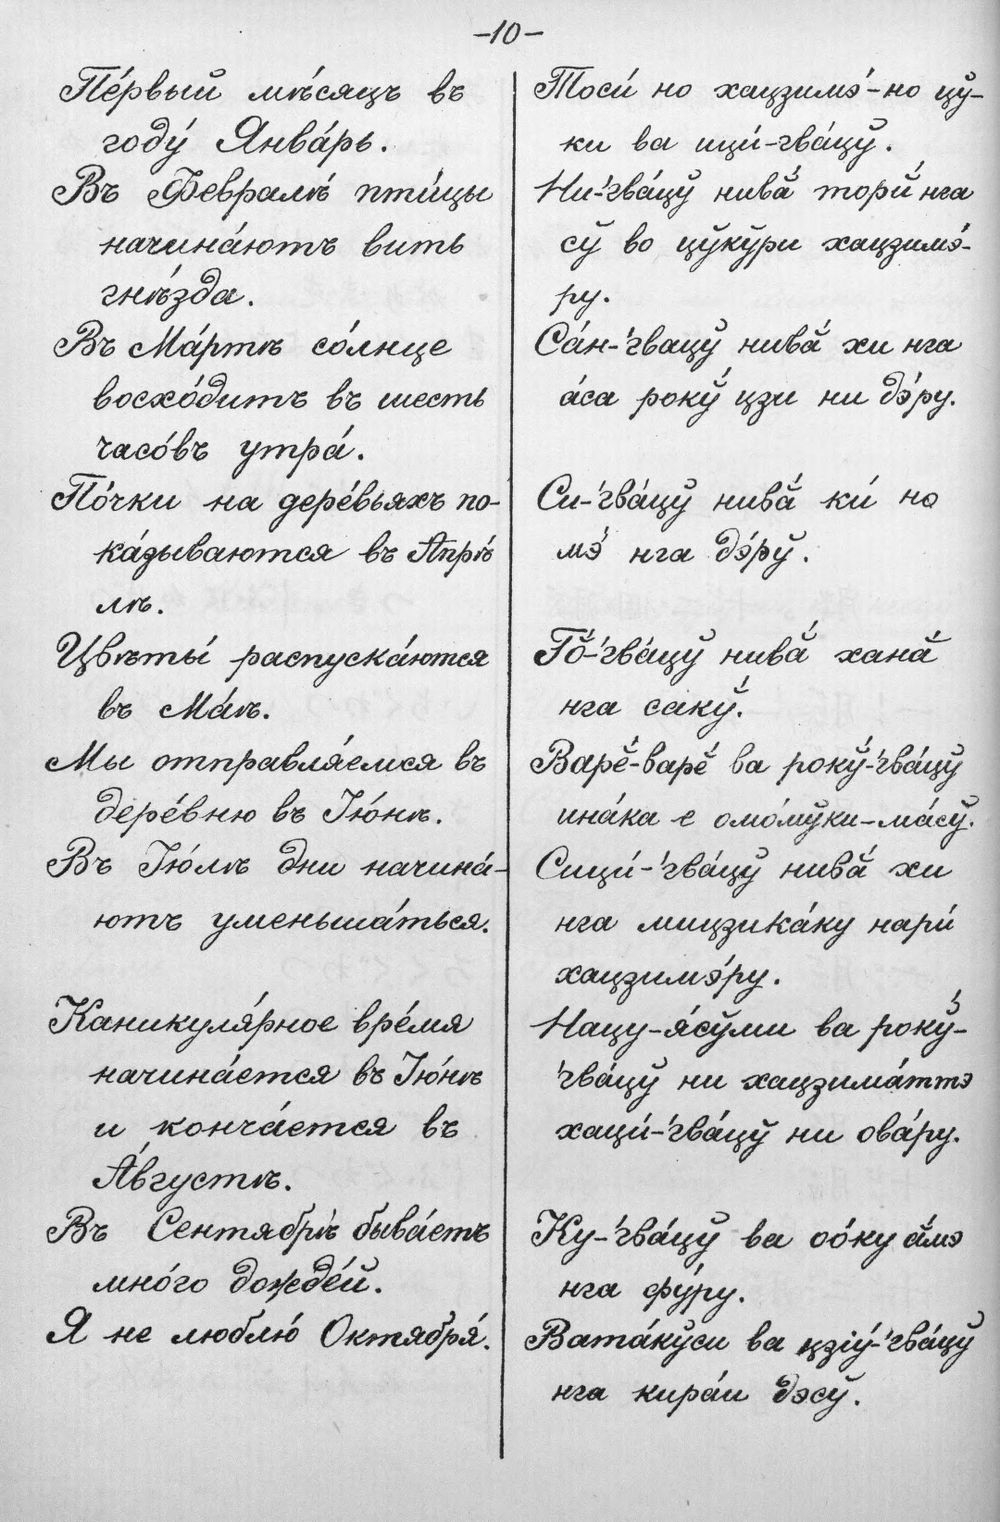 -10-
Пе́рвый мѣ́сяцъ въ
году́ Янва́рь.
Въ Февралѣ́ пти́цы
начина́ютъ вить
гнѣ́зда.
Въ Ма́ртѣ со́лнце
восхо́дитъ въ шесть
часо́въ утра́.
По́чки на дере́вьяхъ по-
ка́зываются въ Апрѣ́
лѣ.
Цвѣты́ распуска́ются
въ Ма́ѣ.
Мы отправля́емся въ
дере́вню въ Ію́нѣ.
Въ Ію́лѣ дни начина́-
ютъ уменьша́ться.
Каникуля́рное вре́мя
начина́ется въ Ію́нѣ
и конча́ется въ
А́вгустѣ.
Въ Сентябрѣ́ быва́етъ
мно́го дожде́й.
Я не люблю́ Октября́.
Тоси́ но хацзимэ́-но цу-
ки ва ици́-гва́цў.
Ни-́гва́цў нивӑ́ торй́ нга
сў во цўкў́ри хацзимэ́-
ру.
Са́н-́гвацў нивӑ́ хи нга
а́са рокў́ цзи ни дэ́ру.
Си-́гва́цў нивӑ́ ки́ но
мэ́ нга дэ́рў.
Го̆́-́гва́цў нивӑ́ ханӑ́
нга сакў́.
Варӗ́-варӗ́ ва рокў́-́гва́цў
ина́ка е омо́мўки-ма́сў.
Сици́-́гва́цў нивӑ́ хи
нга мицзика́ку нари́
хацзимэ́ру.
Нацу-я́сўми ва рокў́-
́гва́цў ни хацзима́ттэ
хаци́-́гва́цў ни ова́ру.
Ку-́гва́цў ва оо́ку ӑ́мэ
нга фу́ру.
Вата́кўси ва цзіў́-́гва́цў
нга кира́и дэсў.